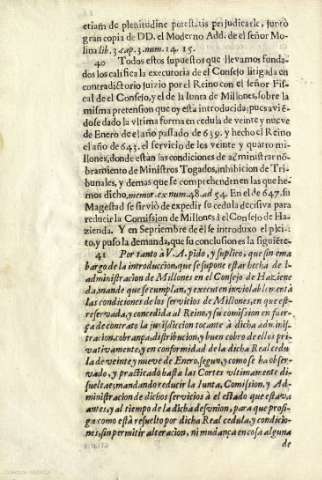 etiam de plenitudine potestatis prejudicare, juntò
gran copia de DD. el Moderno Add. de el señor Mo-
lina lib. 3 cap. 3. num. 14. 15.
40 Todos estos supuestos que llevamos funda-
dos los califica la executoria de el Consejo litigada en
contradictorio juizio por el Reyno con el señor Fis-
cal de el Consejo, y el de la Iunta de Millones, sobre la
misma pretension que oy està introducida; pues avié-
dose dado la vltima forma en cedula de veinte y nueve
de Enero de el año passado de 639. y hecho el Reino
el año de 643. el servicio de los veinte y quatro mi-
llones, donde estàn las condiciones de administrar nó-
bramiento de Ministros Togados, inhibicion de Tri-
bunales, y demàs que se comprehenden en las que he-
mos dicho, memor. ex num. 48. ad 54. En el de 647. su
Magestad se sirviò de expedir su cedula decisiva para
reducir la Comission de Millones à el Consejo de Ha-
zienda. Y en Septiembre de èl se introduxo el plei-
to, y puso la demanda, que su conclusion es la siguiéte.
41 Por tanto à V. A. pido, y suplico, que sin em-
bargo de la introduccion, que se supone estàr hecha de la
administracion de Millones en el Consejo de Hazien-
da, mande que se cumplan, y executen inviolablemente
las condiciones de los servicios de Millones, en que est-
reservada, y concedida al Reyno, y su comision en fuer-
ça de contrato la jurisdiccion tocante à dicha admi-
stracion, cobrança, distribucion, y buen cobro de ellos pri-
vativamente, y en conformidad de la dicha Real cedu
la de veinte y nueve de Enero, segun, y como se ha obser-
vado, y practicado hasta las Cortes vltimamente di-
sueltas; mandando reducir la Iunta, Comision, y Ad-
ministracion de dichos servicios à el estado que estava
antes, y al tiempo de la dicha desvnion, para que prosi-
ga como està resuelto por dicha Real cedula, y condicio-
nes, sin permitir alteracion, ni mudança en cosa alguna
de